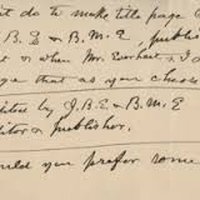 it do to make title page
B. L & B. M. E, publish
or when Mr. Everhart & I d
that as you choose
ited by J. B. E & B. M E
ditor & publisher.
ould you prefer some